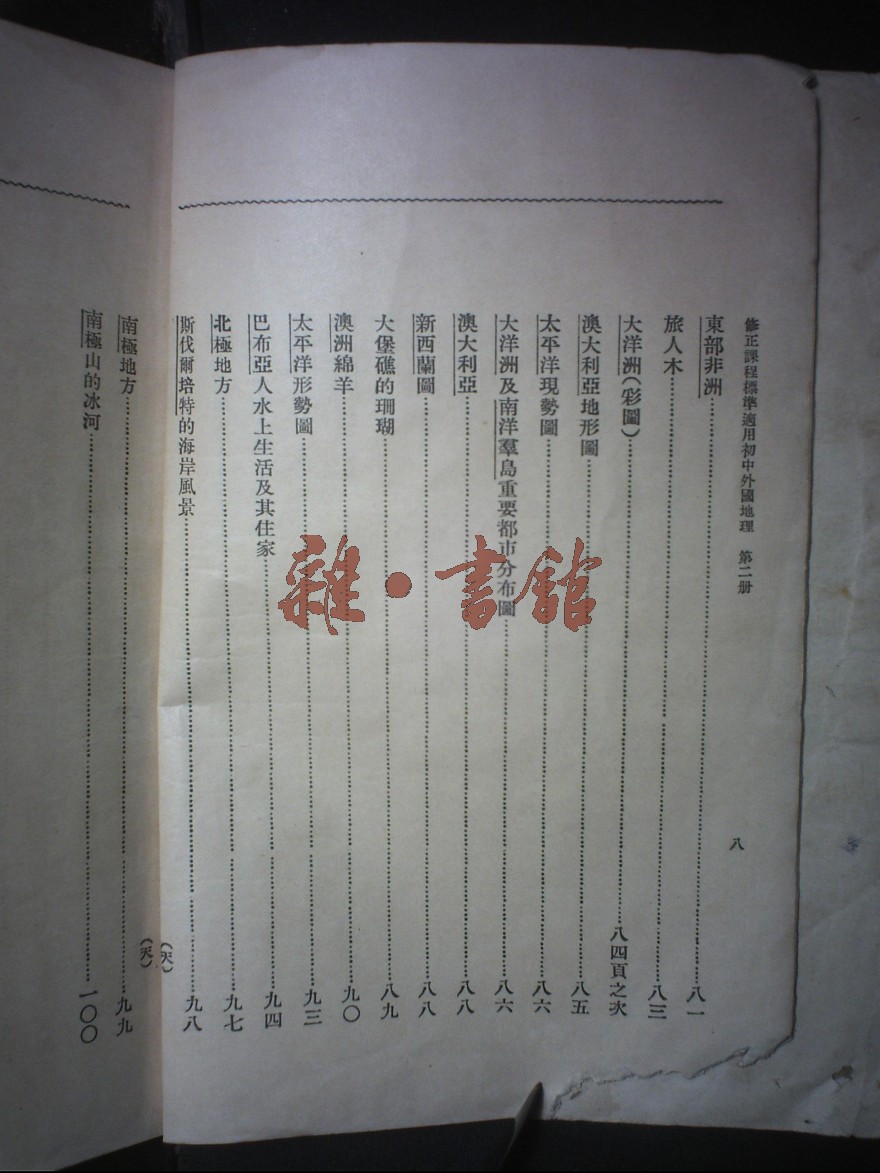 修正課程標準適用初中外國地理　第二册
八
東部非洲……八一
旅人木……八三
大洋洲(彩圖)……八四頁之次
澳大利亞地形圖……八五
太平洋現勢圖……八六
大洋洲及南洋羣島重要都市分布圖……八六
澳大利亞……八八
新西蘭圖……八八
大堡礁的珊瑚……八九
澳洲綿羊……九〇
太平洋形勢圖……九三
巴布亞人水上生活及其住家……九四
北極地方……九七
斯伐爾培特的海岸風景……九八
(天)
(天)
南極地方……九九
南極山的冰河……一〇〇
雜·書館